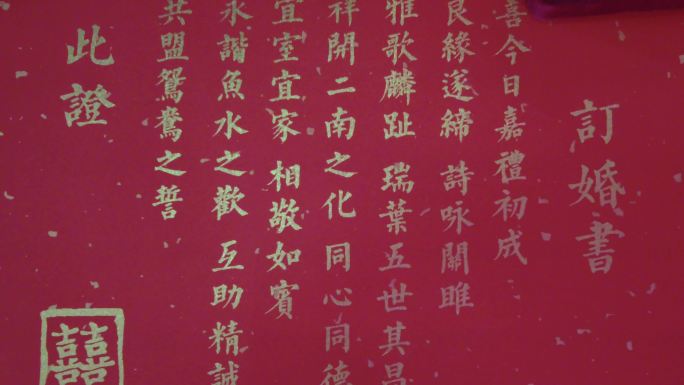 訂婚書
喜今日嘉禮初成
良緣遂締 詩咏關雎
雅歌麟趾 瑞葉五世其昌
祥開二南之化 同心同德
宜室宜家 相敬如賓
永諧魚水之歡 互助精誠
共盟鴛鴦之誓
此證
囍